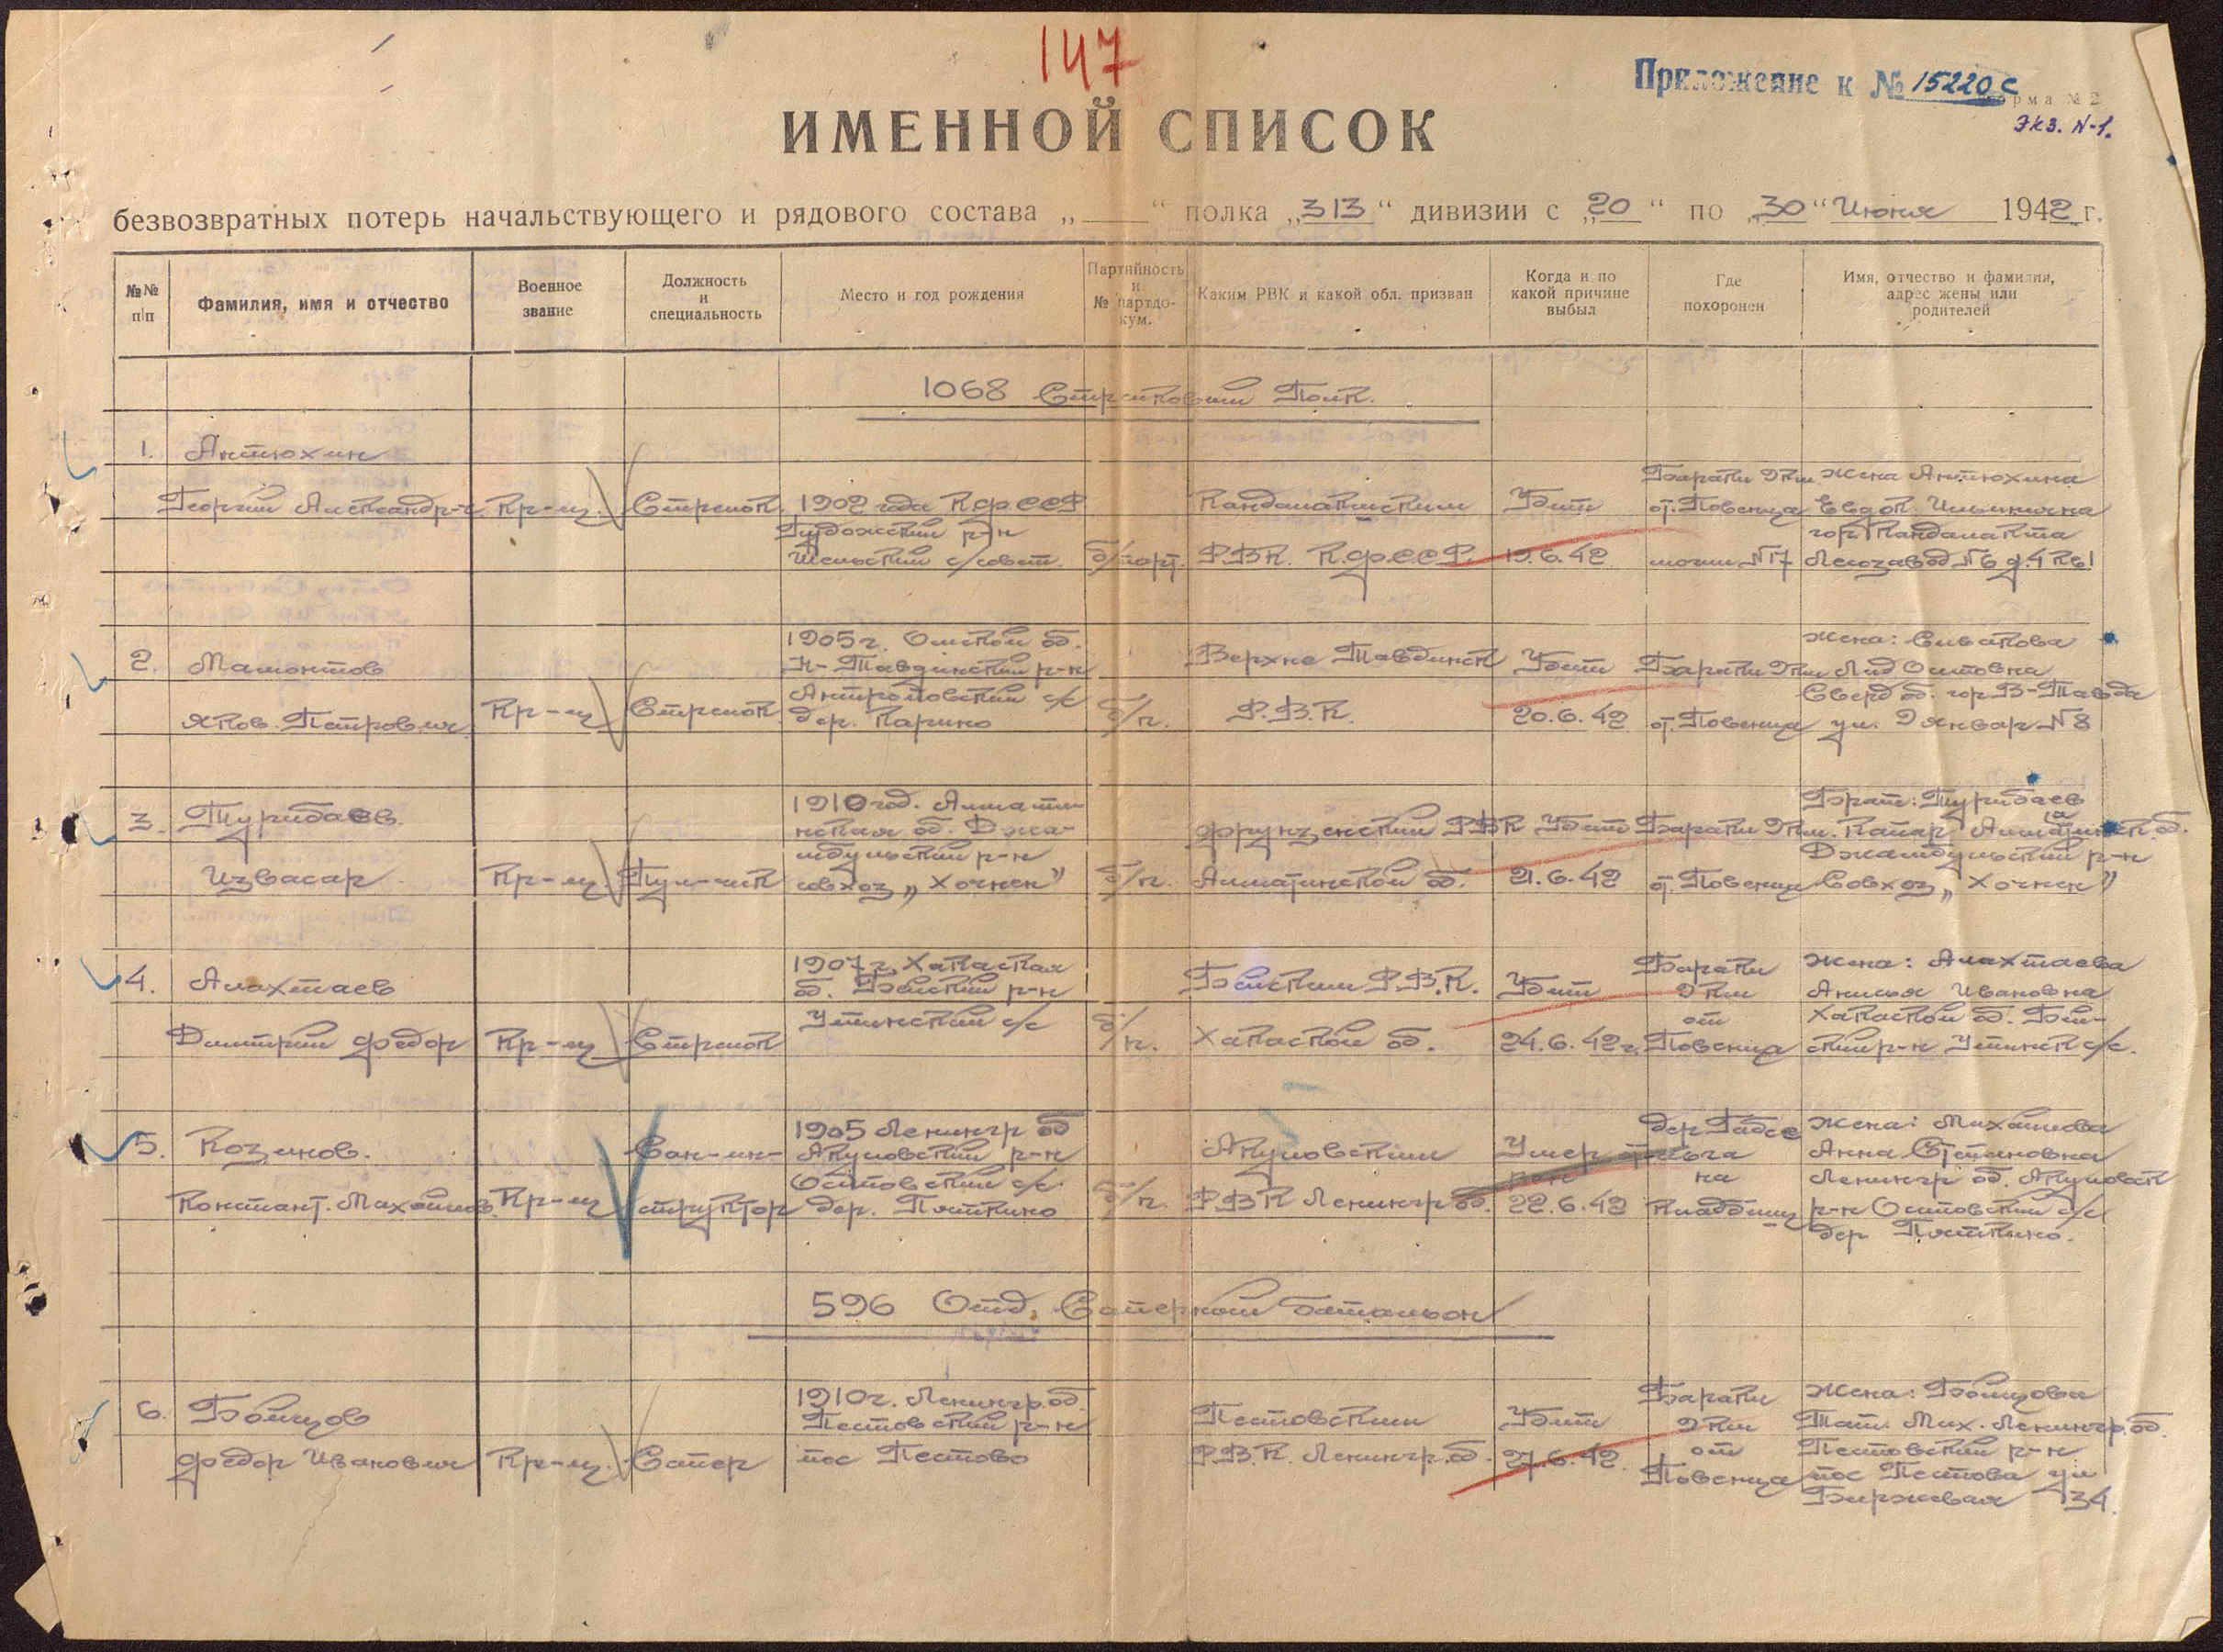 147
Приложение к № 15220с
Форма № 2
Экз. N-1.
ИМЕННОЙ СПИСОК
безвозвратных потерь начальствующего и рядового состава „ “ полка „313“ дивизии с „20“ по „30“ Июня 1942 г.
№№ п/п
Фамилия, имя и отчество
Военное звание
Должность и специальность
Место и год рождения
Партийность и № партдокум.
Каким РВК и какой обл. призван
Когда и по какой причине выбыл
Где похоронен
Имя, отчество и фамилия, адрес жены или родителей
1068 Стрелковый Полк.
1. Антюхин
Георгий Александр-ч Кр-ец. Стрелок. 1902 года КФССР
Пудожский р-н
Шельский с/совет. б/парт.
Кандалакшским
Р.В.К. К.Ф.С.С.Р.
Убит
19.6.42
Бараки 9 км
от. Повенца
могил N17
Жена Антюхина
Евдок. Ильинична
гор. Кандалакша
Лесозавод N6 д.4 кв1
2. Мамонтов
Яков. Петрович Кр-ец Стрелок
1905 г. Омской об.
Н-Тавдинский р-н
Антроповский с/с
дер. Карино
б/п.
Верхне Тавдинск
Р.В.К.
Убит
20.6.42
Бараки 9 км
от. Повенца
Жена: Сивакова
Лид Осиповна
Сверд об. гор. В-Тавда
ул. 9 январ. N 8
3. Турибаев.
Извасар Кр-ец Пул-чик
1910 год. Алмати-
нская об. Джа-
мбульский р-н
совхоз „Хочнек”
б/п.
Фрунзенский РВК
Алматинской об.
Убит
21.6.42
Бараки 9 км.
от. Повенца
Брат: Турибаев
Капар Алматинск об.
Джамбульский р-н
Совхоз „Хочнек”
4. Алахтаев
Дмитрий Федор Кр-ец Стрелок
1907 г. Хакаская
об. Бейский р-н
Утинский с/с
б/п.
Бейским Р.В.К.
Хакаской об.
Убит
24.6.42 г.
Бараки
9 км
от
Повенца
Жена: Алахтаева
Анисья Ивановна
Хакаской об. Бей-
ский р-н Утинск с/с.
5. Козинов.
Констант. Михайлов. Кр-ец
Сан-ин-
структор
1905 Ленингр об
Акуловский р-н
Осиповский с/с.
дер. Пяткино
б/п.
Акуловским
Р.В.К Ленингр об.
Умер от
ран
22.6.42
дер Габсе
льга
на
кладбищ
Жена: Михайлова
Анна Степановна
Ленингр об. Акуловск
р-н Осиповский с/с
дер Пяткино.
596 Отд. Саперный батальон
6. Бойцов
Федор Иванович Кр-ец. Сапер
1910 г. Ленингр. об.
Пестовский р-н
пос Пестово
Пестовским
Р.В.К. Ленингр. об.
Убит
27.6.42.
Бараки
9 км
от
Повенца
Жена: Бойцова
Тат. Мих. Ленингр. об.
Пестовский р-н
пос Пестова ул
Биржевая 34.